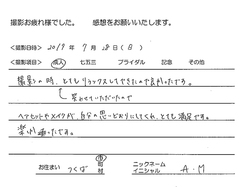 撮影お疲れ様でした。 感想をお願いいたします。
<撮影日時> 2019年 7月 28日(日)
<撮影項目> 成人 七五三 ブライダル 記念 その他
撮影の時、とてもリラックスしてできたので良かったです。
笑わせていただいたので
ヘアセットやメイクが、自分の思いどおりにしてくれ、とても満足です。
楽しかったです。
お住まい つくば 市 町 村 ニックネーム イニシャル A.M